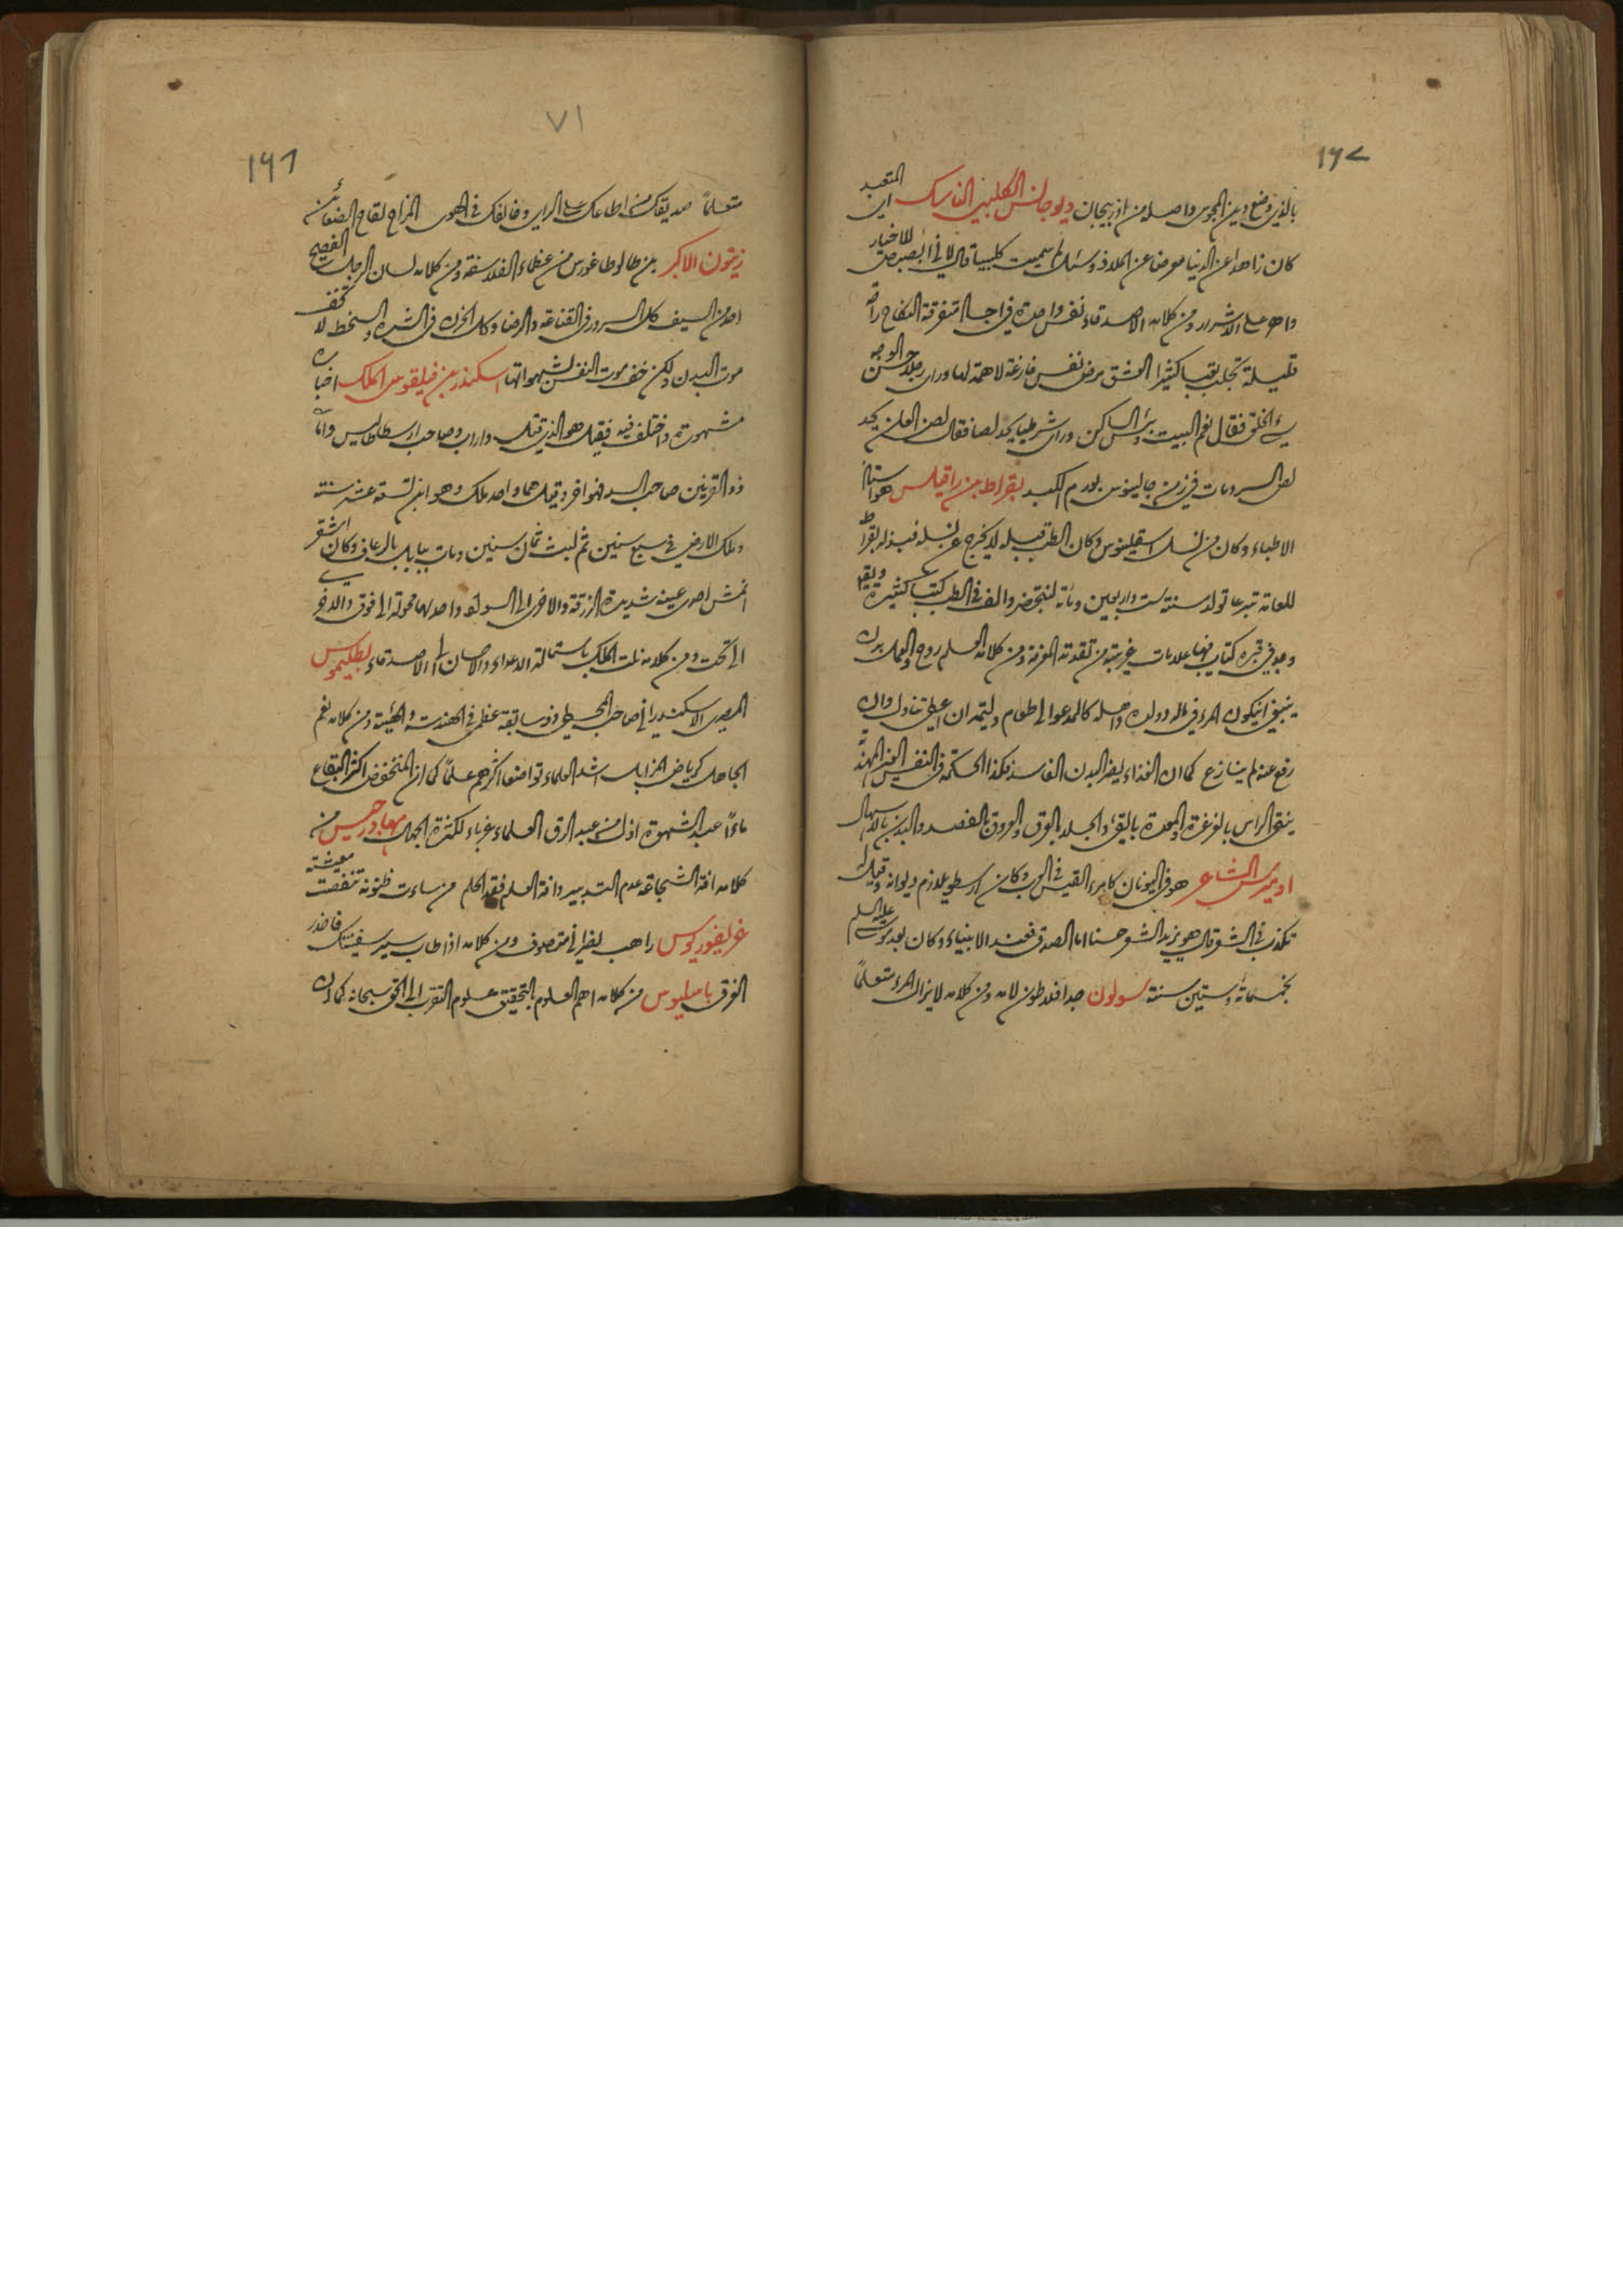 ١٩٧
بالذي وضع دين المجوس واصله من اذربيجان ديوجانس الكلبي الناسك المتعبد
كان زاهدا عن الدنيا معرضا عن الملاذ وسئل لم سميت كلبيا قال لاني ابصبص للاخيار
واهر على الاشرار ومن كلامه الاصدقاء نفس واحدة في اجساد متفرقة النكاح راحة
قليلة تجلب تعبا كثيرا العشق مرض نفس فارغة لا همة لها وراى رجلا حسن الوجه
سيئ الخلق فقال نعم البيت وبئس الساكن وراى شرطيا يحد لصا فقال لص العلن يحد
لص السر ومات في زمن جالينوس بورم الكبد بقراط بن راقيلس هو استاذ
الاطباء وكان من نسل اسقلينوس وكان الطب قبله لا يخرج عن نسله فبذله بقراط
للعامة تبرعا تولد سنة ست واربعين ومائة لبختنصر والف في الطب كتبا كثيرة
وجد في قبره كتاب فيها علامات غريبة من تقدمة المعرفة ومن كلامه العلم روح والعمل بدن
ينبغي ان يكون المرء في ماله وولده واهله كالمدعو الى طعام وليمة ان اعطي تناول وان
رفع عنه لم ينازع كما ان الغذاء يضر البدن الفاسد فكذا الحكمة في النفس الغير المهذبة
ينقى الراس بالغرغرة والمعدة بالقيء والجلد بالعرق والعروق بالفصد والبدن بالاسهال
اوميرس الشاعر هو في اليونان كامرء القيس في العرب وكان ارسطو يلازم ديوانه وقيل له
تكذب في الشعر قال هو يزيد الشعر حسنا اما الصدق فعند الانبياء وكان بعد موسى عليه السلم
بخمسمائة وستين سنة سولون جد افلاطون لامه ومن كلامه لا يزال المرء متعلما
٧١
١٩٦
متعلماً صديقك من اطاعك على الراي وخالفك في الهوى المزاح لقاح الضغائن
زيتون الاكبر بن طالوطاغورس من عظماء الفلاسفة ومن كلامه لسان الرجل الفصيح
احد من السيف كل السرور في القناعة والرضا وكل الحزن في الشره والسخط لا تخف
موت البدن ولكن خف موت النفس لشهواتها اسكندر بن فيلقوس الملك اخباره
مشهورة واختلف فيه فقيل هو الذي قتل داراب وصاحب ارسطاطاليس واما
ذو القرنين صاحب السد فهو اخر وقيل هما واحد ملك وهو ابن تسعة عشر سنة
وملك الارض في سبع سنين ثم لبث ثمان سنين ومات ببابل بالرعاف وكان اشقر
انمش احدى عينيه شديدة الزرقة والاخرى الى السواد واحدها محولة الى فوق والاخرى
الى تحت ومن كلامه نلت الملك باستمالة الاعداء والاحسان الى الاصدقاء بطليموس
المصري الاسكندراني صاحب المجسطي وذو سابقة عظمى في الهندسة والهيئة ومن كلامه نعم
الجاهل كرياض المزابل اشد العلماء تواضعا اكثرهم علماً كما ان المنخفض اكثر البقاع
ماءً عبد الشهوة اذل من عبد الرق العلماء غرباء لكثرة الجهال مهادرجيس من
كلامه افة الشجاعة عدم التدبير وافة العلم فقد الحلم من ساءت ظنونه تنغصت معيشته
غريغوريوس راهب نصراني متصوف ومن كلامه اذا طاب سير سفينتك فاحذر
الغرق باسليوس من كلامه اهم العلوم بالتحقيق علوم التقرب الى الحق سبحانه كما ان